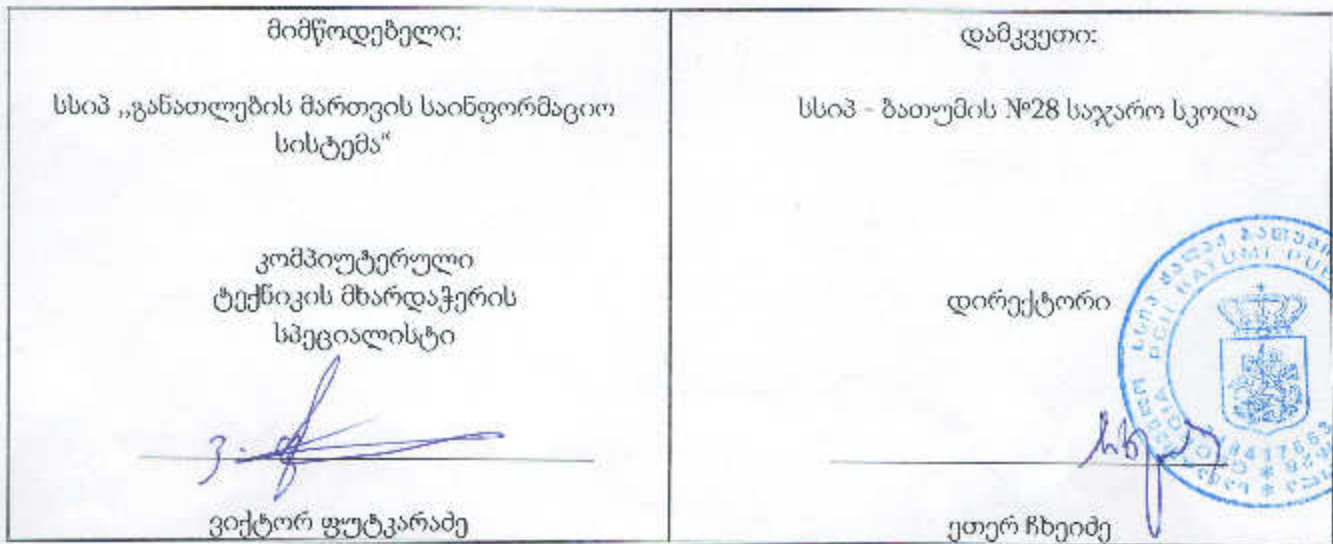 მიმწოდებელი:
სსიპ ,,განათლების მართვის საინფორმაციო
სისტემა“
კომპიუტერული
ტექნიკის მხარდაჭერის
სპეციალისტი
ვიქტორ ფუტკარაძე
დამკვეთი:
სსიპ - ბათუმის №28 საჯარო სკოლა
დირექტორი
ეთერ ჩხეიძე